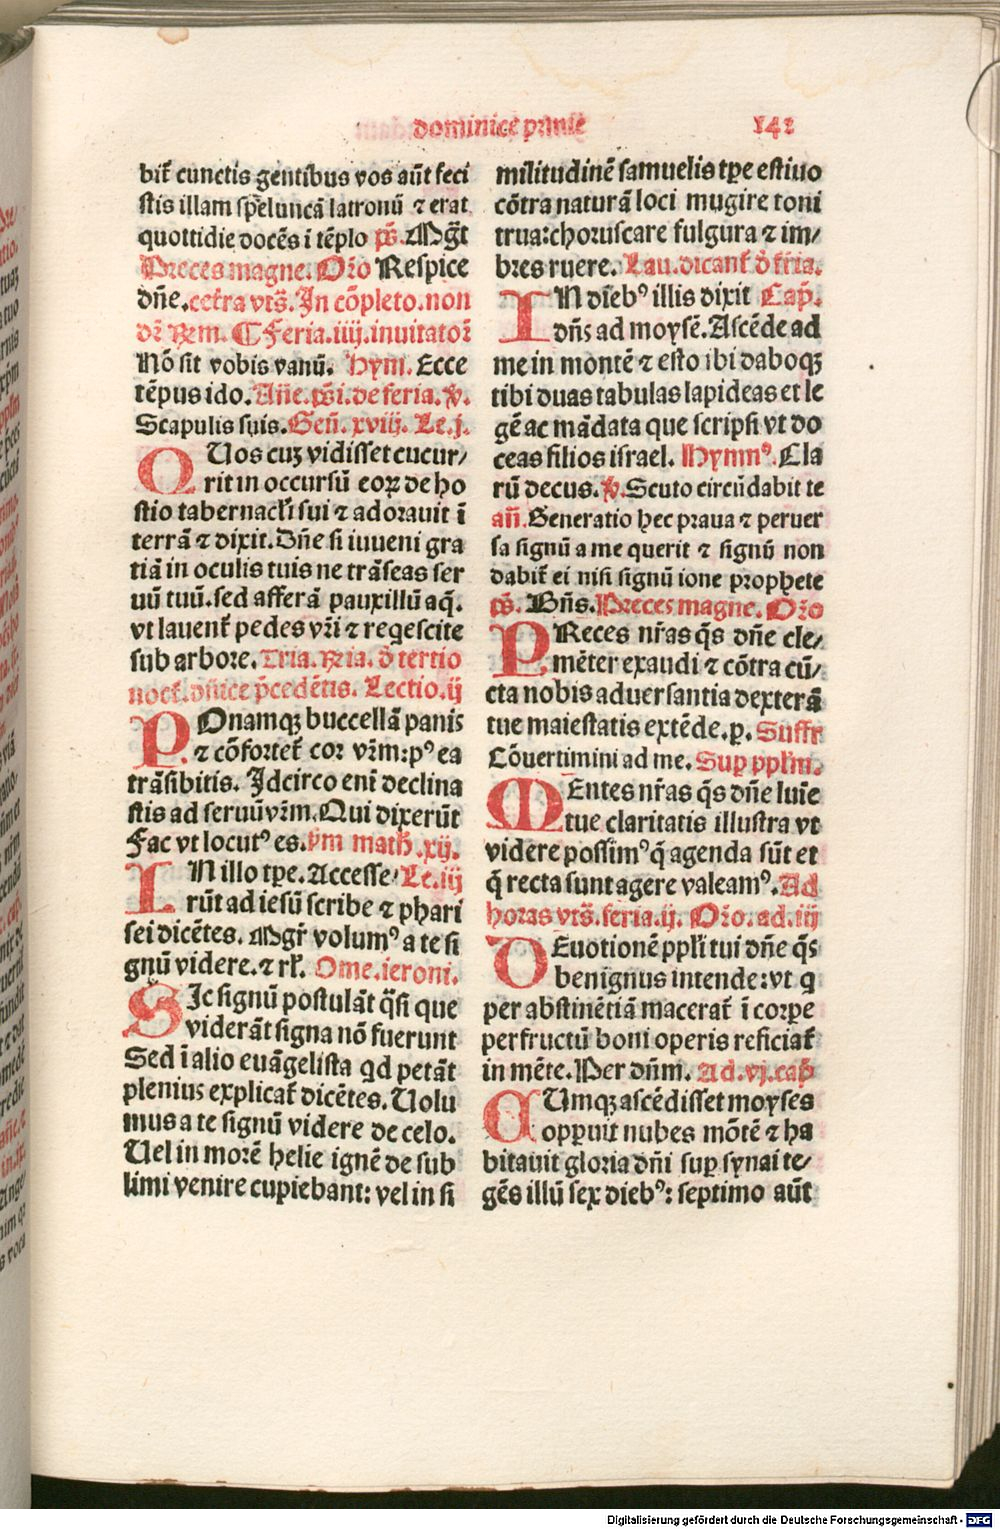 dominice prime
142
bit̃ cunctis gentibus vos aūt feci
stis illam speluncā latronū ⁊ erat
quottidie docēs ī tēplo p̄s. Mgt̃
Preces magne. Or̃o Respice
dñe. cetra vts̃. In cōpleto. non
dr̃ R̃em. ¶ Feria. iiij. inuitator̃
Nō sit vobis vanū. Hym. Ecce
tēpus ido. Añe. p̄si. de feria. v̄.
Scapulis suis. Geñ. xviij. Le. j.
QUos cuꝫ vidisset cucur/
rit in occursū eoꝝ de ho
stio tabernacl̃i sui ⁊ adorauit ī
terrā ⁊ dixit. Dñe si inueni gra
tiā in oculis tuis ne trāseas ser
uū tuū. sed afferā pauxillū aq̄.
vt lauent̃ pedes vr̃i ⁊ reqescite
sub arbore. Tria. R̃ia. d̄ tertio
noct̃. dñice p̃cedētis. Lectio. ij
POnamqꝫ buccellā panis
⁊ cōfortet̃ cor vr̃m: pꝰ ea
trāsibitis. Idcirco eni͂ declina
stis ad seruū vr̃m. Qui dixerūt
Fac vt locutꝰ es. s̄m math̃. xij.
IN illo tp̄e. Accesse/ Le. iij
rūt ad iesū scribe ⁊ phari
sei dicētes. Mgr̃ volumꝰ a te si
gnū videre. ⁊ rl̃. Ome. ieroni.
SIc signū postulāt q̄si que
viderāt signa nō fuerunt
Sed ī alio euāgelista qd petāt
plenius explicat̃ dicētes. Uolu
mus a te signū videre de celo.
Uel in morē helie ignē de sub
limi venire cupiebant: vel in si
militudinē samuelis tp̄e estiuo
cōtra naturā loci mugire toni
trua: choruscare fulgura ⁊ im/
bres ruere. Lau. dicant̃ d̄ fr̃ia.
IN dieb̃ꝰ illis dixit Cap̄.
dñs ad moysē. Ascēde ad
me in montē ⁊ esto ibi daboqꝫ
tibi duas tabulas lapideas et le
gē ac mādata que scripsi vt do
ceas filios israel. Hymnꝰ. Cla
rū decus. v̄. Scuto circūdabit te
añ. Generatio hec praua ⁊ peruer
sa signū a me querit ⁊ signū non
dabit̃ ei nisi signū ione prophete
p̄s. Bñs. Preces magne. Or̃o
PReces nr̃as q̄s dñe cle/
mēter exaudi ⁊ cōtra cū/
cta nobis aduersantia dexterā
tue maiestatis extēde. p. Suffr̃
Cōuertimini ad me. Suꝑ ppl̃m.
MEntes nr̃as q̄s dñe lum̃e
tue claritatis illustra vt
videre possimꝰ q̄ agenda sūt et
q̄ recta sunt agere valeamꝰ. Ad
horas vts̃. feria. ij. Or̃o. ad. iij
DEuotionē ppl̃i tui dñe q̄s
benignus intende: vt q
per abstinētiā macerat̃ ī corꝑe
per fructū boni operis reficiat̃
in mēte. Per dñm. Ad. vj. cap̄
CUmqꝫ ascēdisset moyses
oꝑuit nubes mōtē ⁊ ha
bitauit gloria dñi suꝑ synai te/
gēs illū sex dieb̃ꝰ: septimo aūt
Digitalisierung gefördert durch die Deutsche Forschungsgemeinschaft - DFG